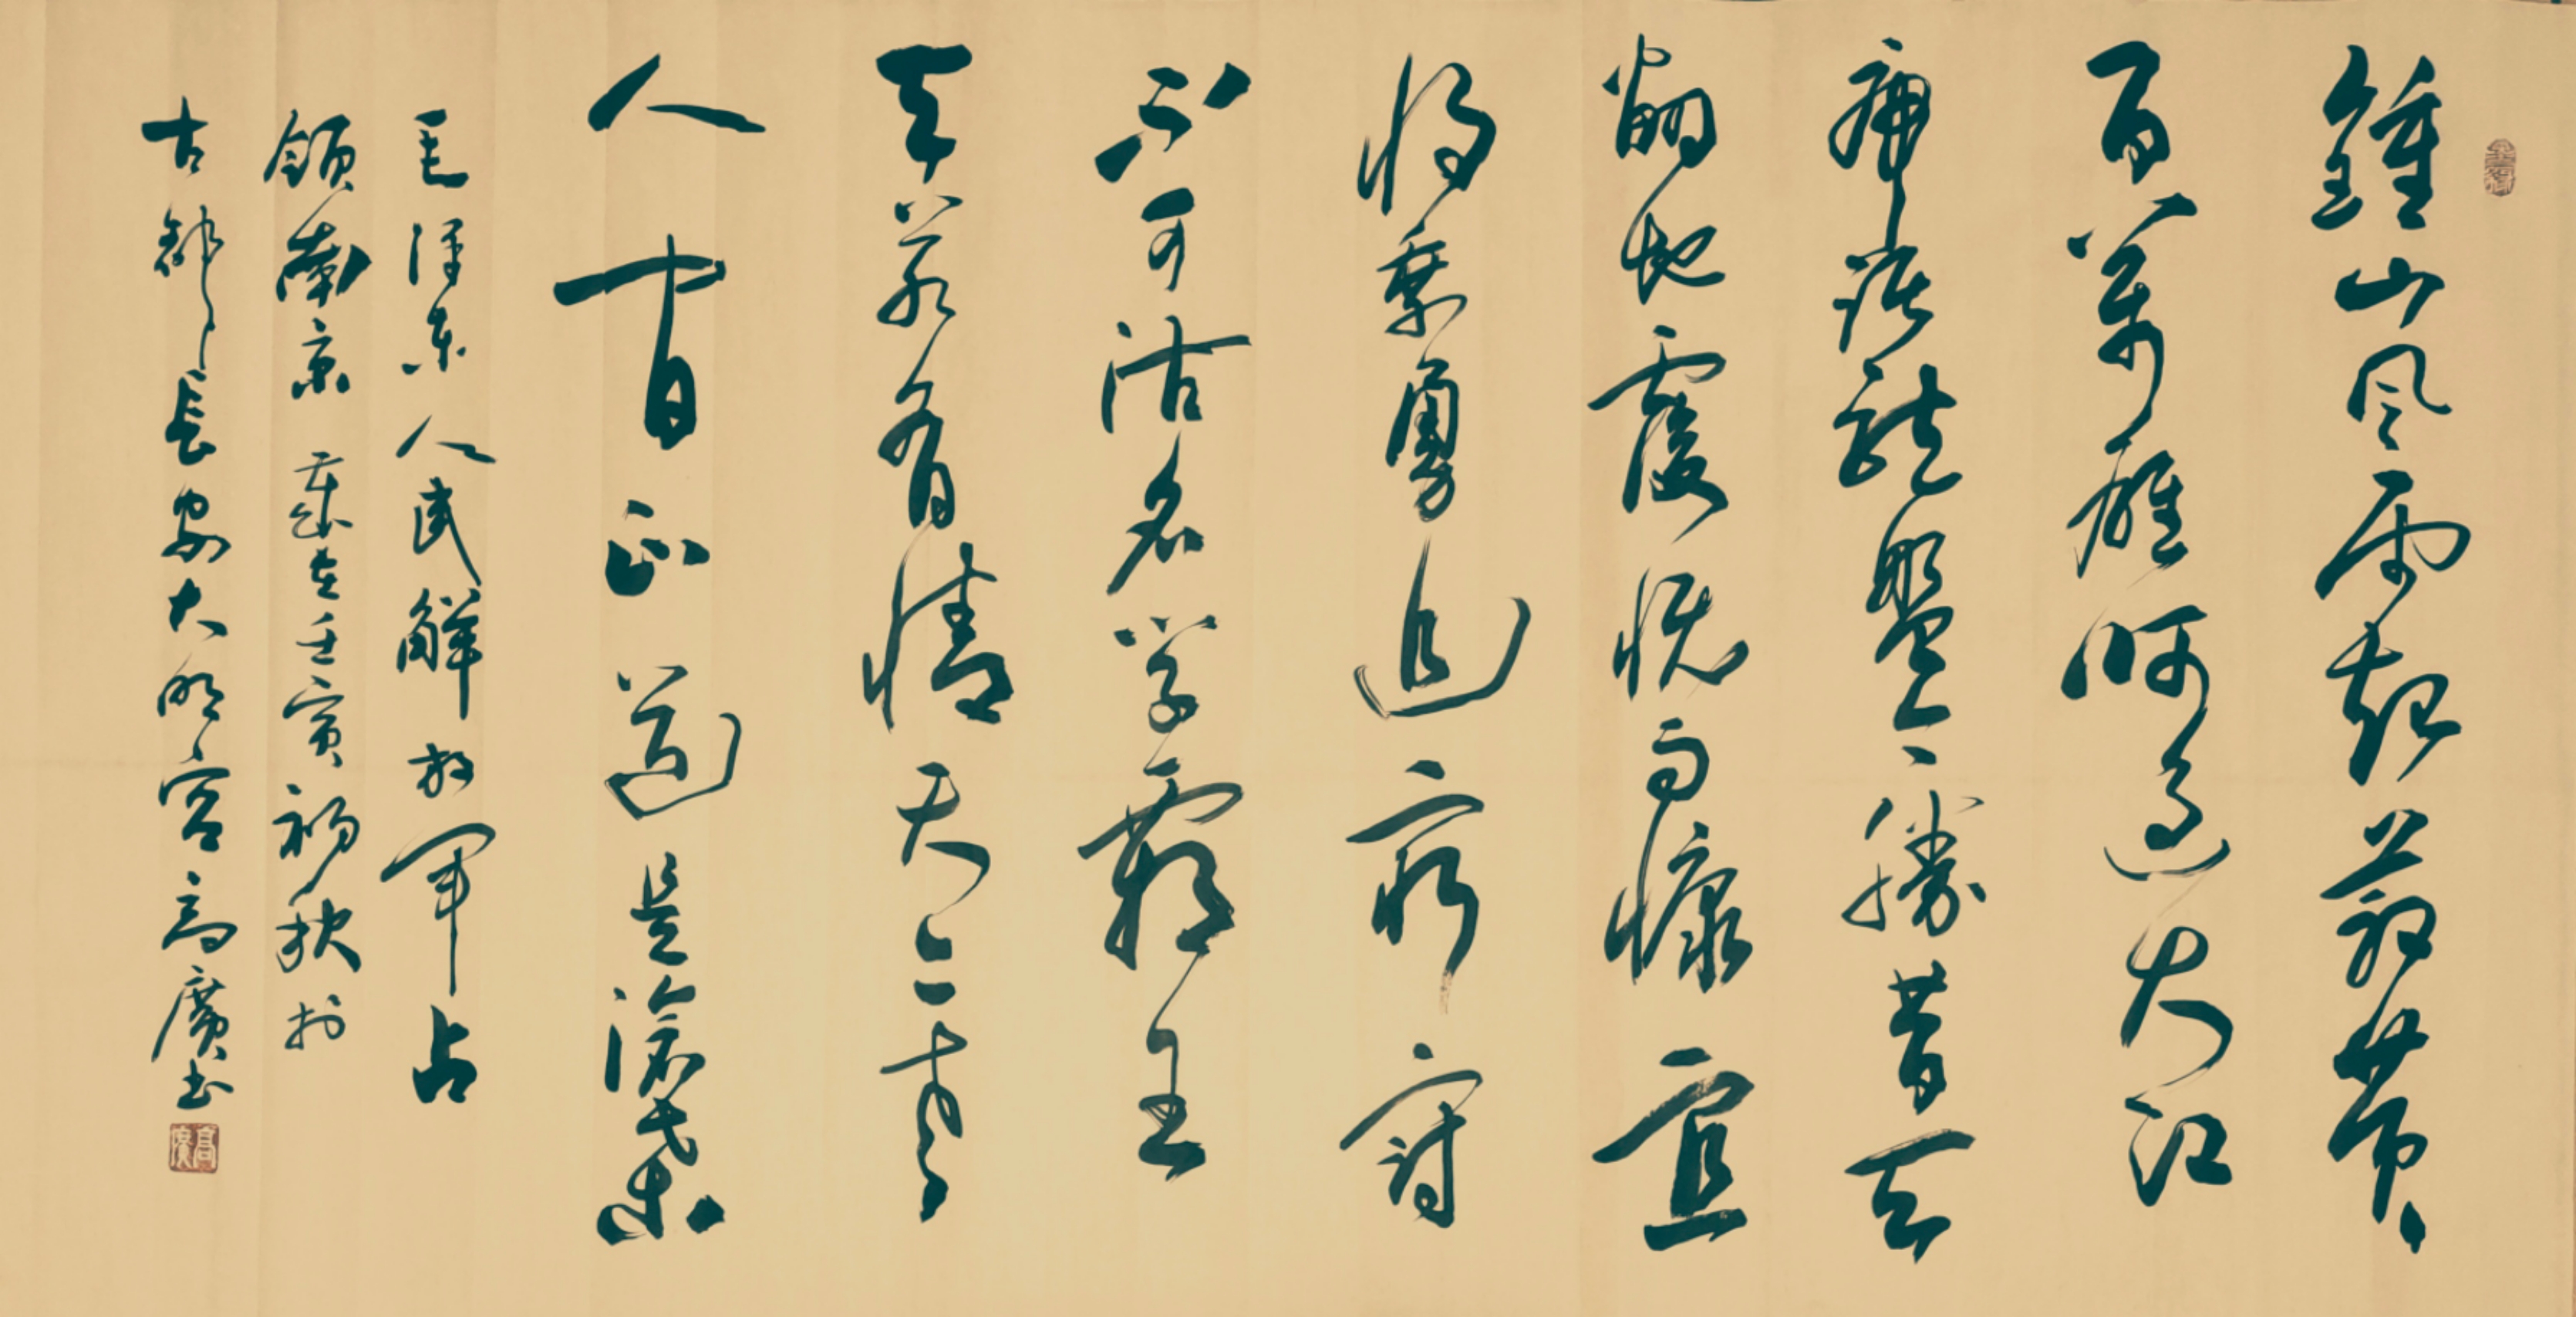 鍾山风雨起蒼黄
百萬雄师过大江
虎踞龍盤今勝昔天
翻地覆慨而慷宜
将乘勇追穷寇
不可沽名学霸王
天若有情天亦老
人间正道是滄桑
毛澤东人民解放军占
領南京 歲在壬寅初秋於
古都长安大明宫高廣书
高廣